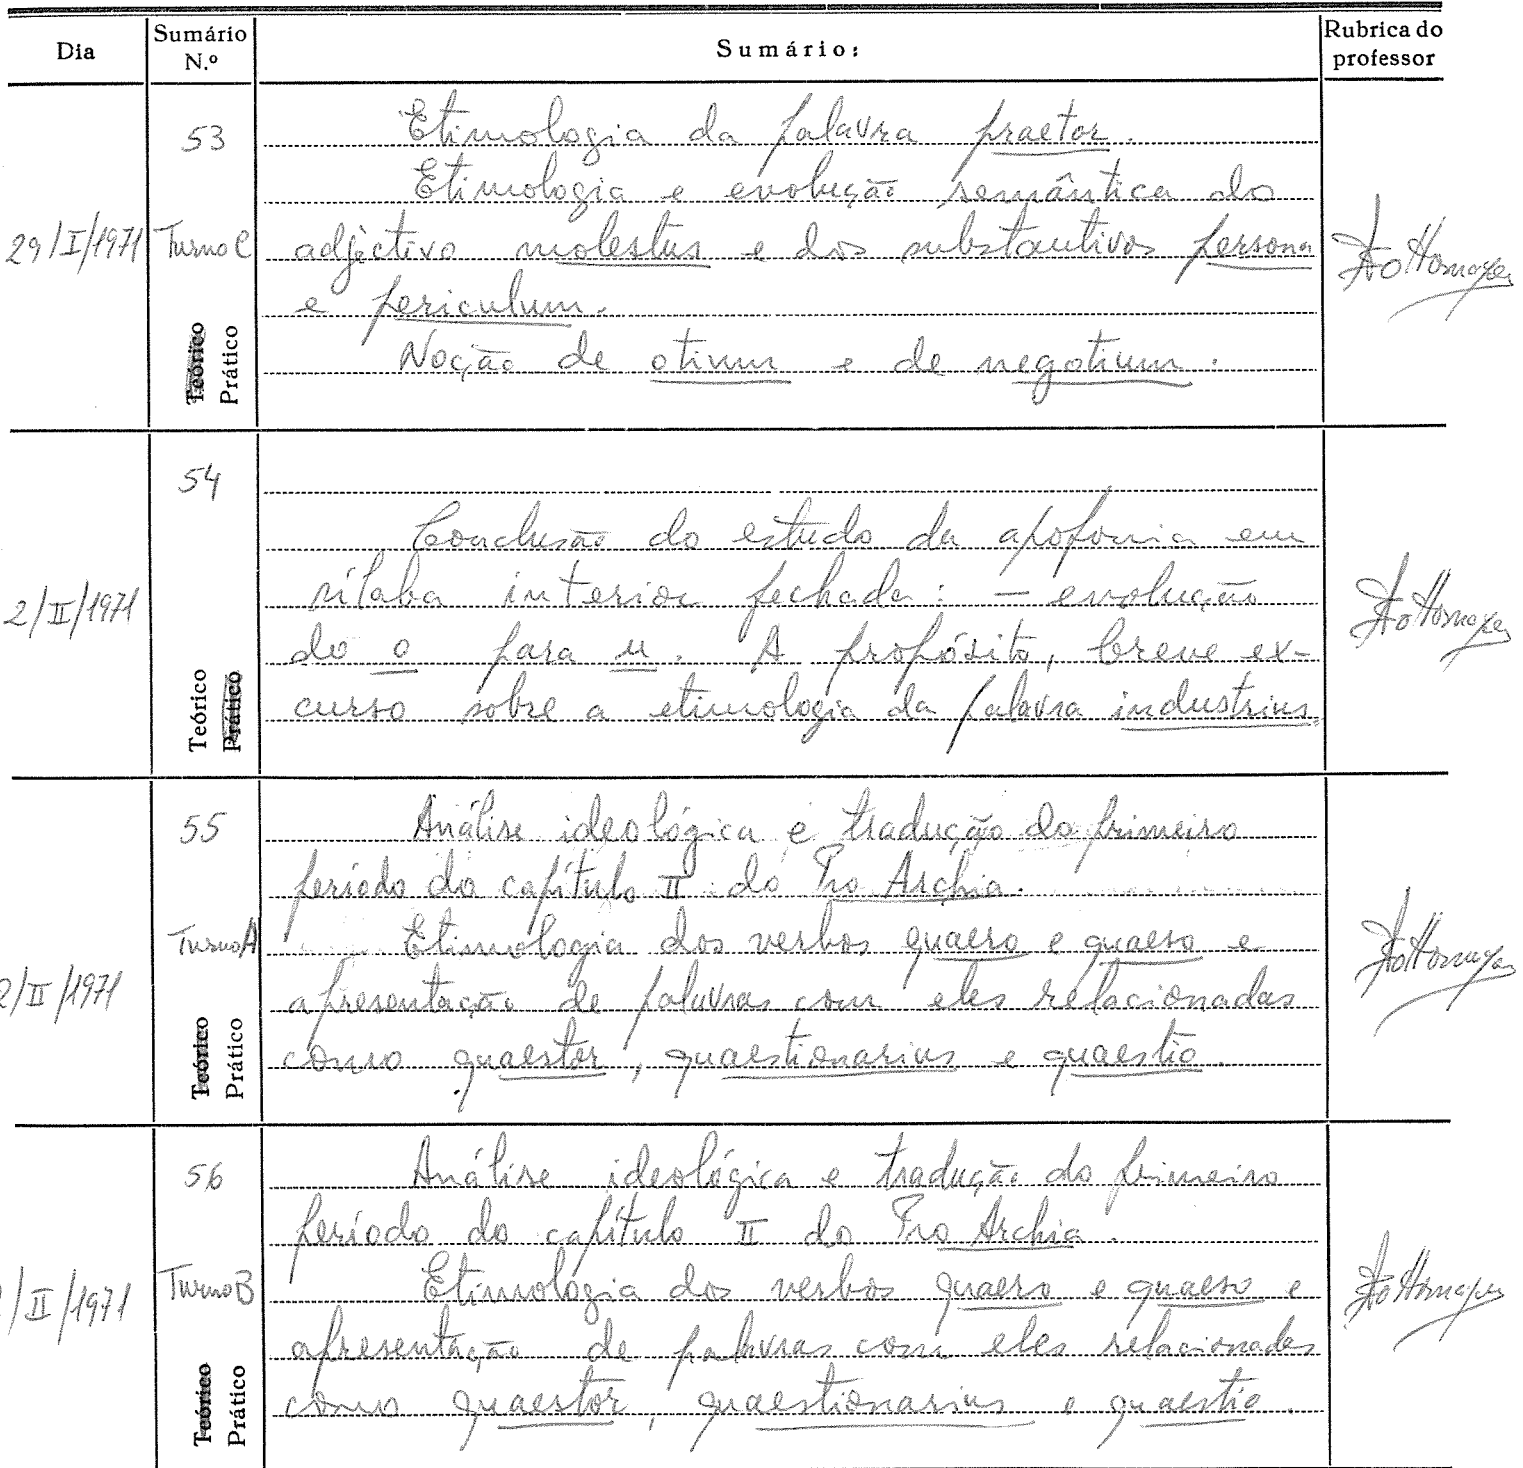 Dia
Sumário N.º
Sumário:
Rubrica do professor
29/I/1971
53
Turno C
Teórico
Prático
Etimologia da palavra praetor.
Etimologia e evolução semântica do
adjectivo molestus e dos substantivos persona
e periculum.
Noção de otium e de negotium.
2/II/1971
54
Teórico
Prático
Conclusão do estudo da apofonia em
sílaba interior fechada: — evolução
do o para u. A propósito, breve ex-
curso sobre a etimologia da palavra industrius.
2/II/1971
55
Turno A
Teórico
Prático
Análise ideológica e tradução do primeiro
período do capítulo II do Pro Archia.
Etimologia dos verbos quaero e quaeso e
apresentação de palavras com eles relacionadas
como quaestor, quaestionarius e quaestio.
/II/1971
56
Turno B
Teórico
Prático
Análise ideológica e tradução do primeiro
período do capítulo II do Pro Archia.
Etimologia dos verbos quaero e quaeso e
apresentação de palavras com eles relacionadas
como quaestor, quaestionarius e quaestio.